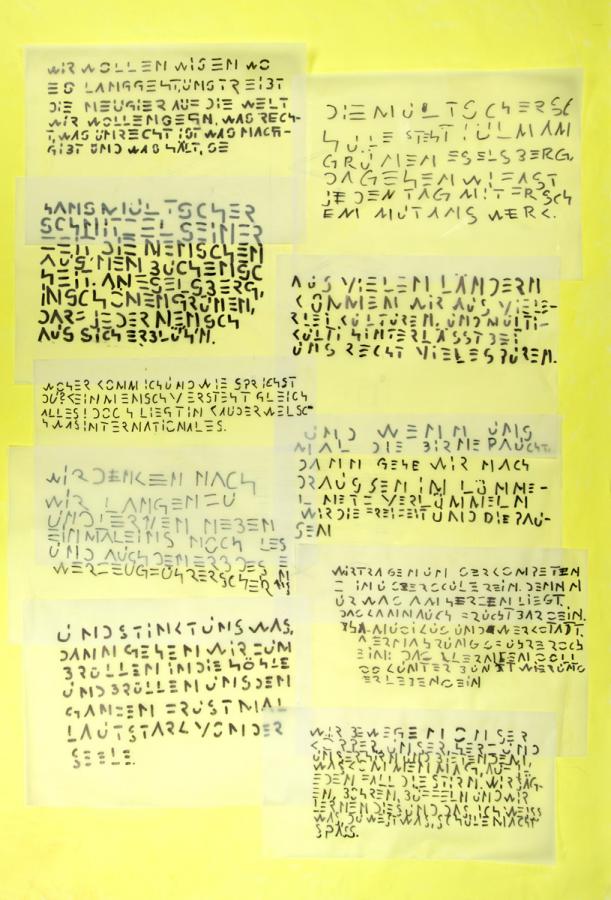 WIR WOLLEN WISEN WO
ES LANGGEHT, UNS TREIBT
DIE NEUGIER AUF DIE WELT
WIR WOLLEN GERN, WAS RECH-
T, WAS UNRECHT IST WAS MACH-
GIBT UND WAS HÄLT, SE
DIE MULTSCHERSC
HULE STEHT IM ULM AM
GRÜNEN ESELSBERG,
DA GEHEN WIR FAST
JEDEN TAG MIT FRISCH
EM MUT ANS WERK.
HANS MULTSCHER
SCHNITT EL SEINER
ZEIT DIE MENSCHEN
AUS, NEM BUCHENSC
HEIT. AN ESELSBERG,
IN SCHÖNEM GRÜNEN,
DARF JEDER MENSCH
AUS SICH ERBLÜHN.
AUS VIELEN LÄNDERN
KOMMEN WIR AUS VIELE-
RLEI KULTUREN, UND MULTI-
KULTI HINTERLÄSST BEI
UNS RECHT VIELE SPUREN.
WOHER KOMM ICH UND WIE SPRICHST
DU? KEIN MENSCH VERSTEHT GLEICH
ALLES! DOCH LIEGT IN KAUDERWELSC-
H WAS INTERNATIONALES.
UND WENN UNS
MAL DIE BIRNE RAUCHT,
DANN GEHE WIR NACH
DRAUSSEN IM LÜMME-
L NETZ VERLÜMMELN
WIR DIE FREIZEIT UND DIE PAU-
SEN
WIR DENKEN NACH
WIR LANGEN ZU
UND LERNEN NEBEN
EINMALEINS NOCH LES
UND AUCH DEN ERBDES E
WERKZEUGFÜHRERSCHEINS
WIR TRAGEN UM OBERKOMPETEN
Z IN UNSERE SCHULE REIN, DENN N
UR WAS AM HERZEN LIEGT,
DAS KANN AUCH FRUCHTBAR SEIN.
UND STINKT UNS WAS,
DANN GEHEN WIR ZUM
BRÜLLEN IN DIE HÖHLE
UND BRÜLLEN UNS DEN
GANZEN FRUST MAL
LAUTSTARK VON DER
SEELE.
WIR BEWEGEN UNSER
KÖRPER, UNSER HERZ UND
UNSER HIRN WIR BIETEN DEM,
WAS KOMMEN MAG, AUF J
EDEN FALL DIE STIRN. WIR SÄG-
EN, BOHREN, BÜFFELN UND WIR
LERNEN DIES UND DAS, ICH WEISS
WAS, DU WEIST WAS, SCHULE MACHT
SPASS.